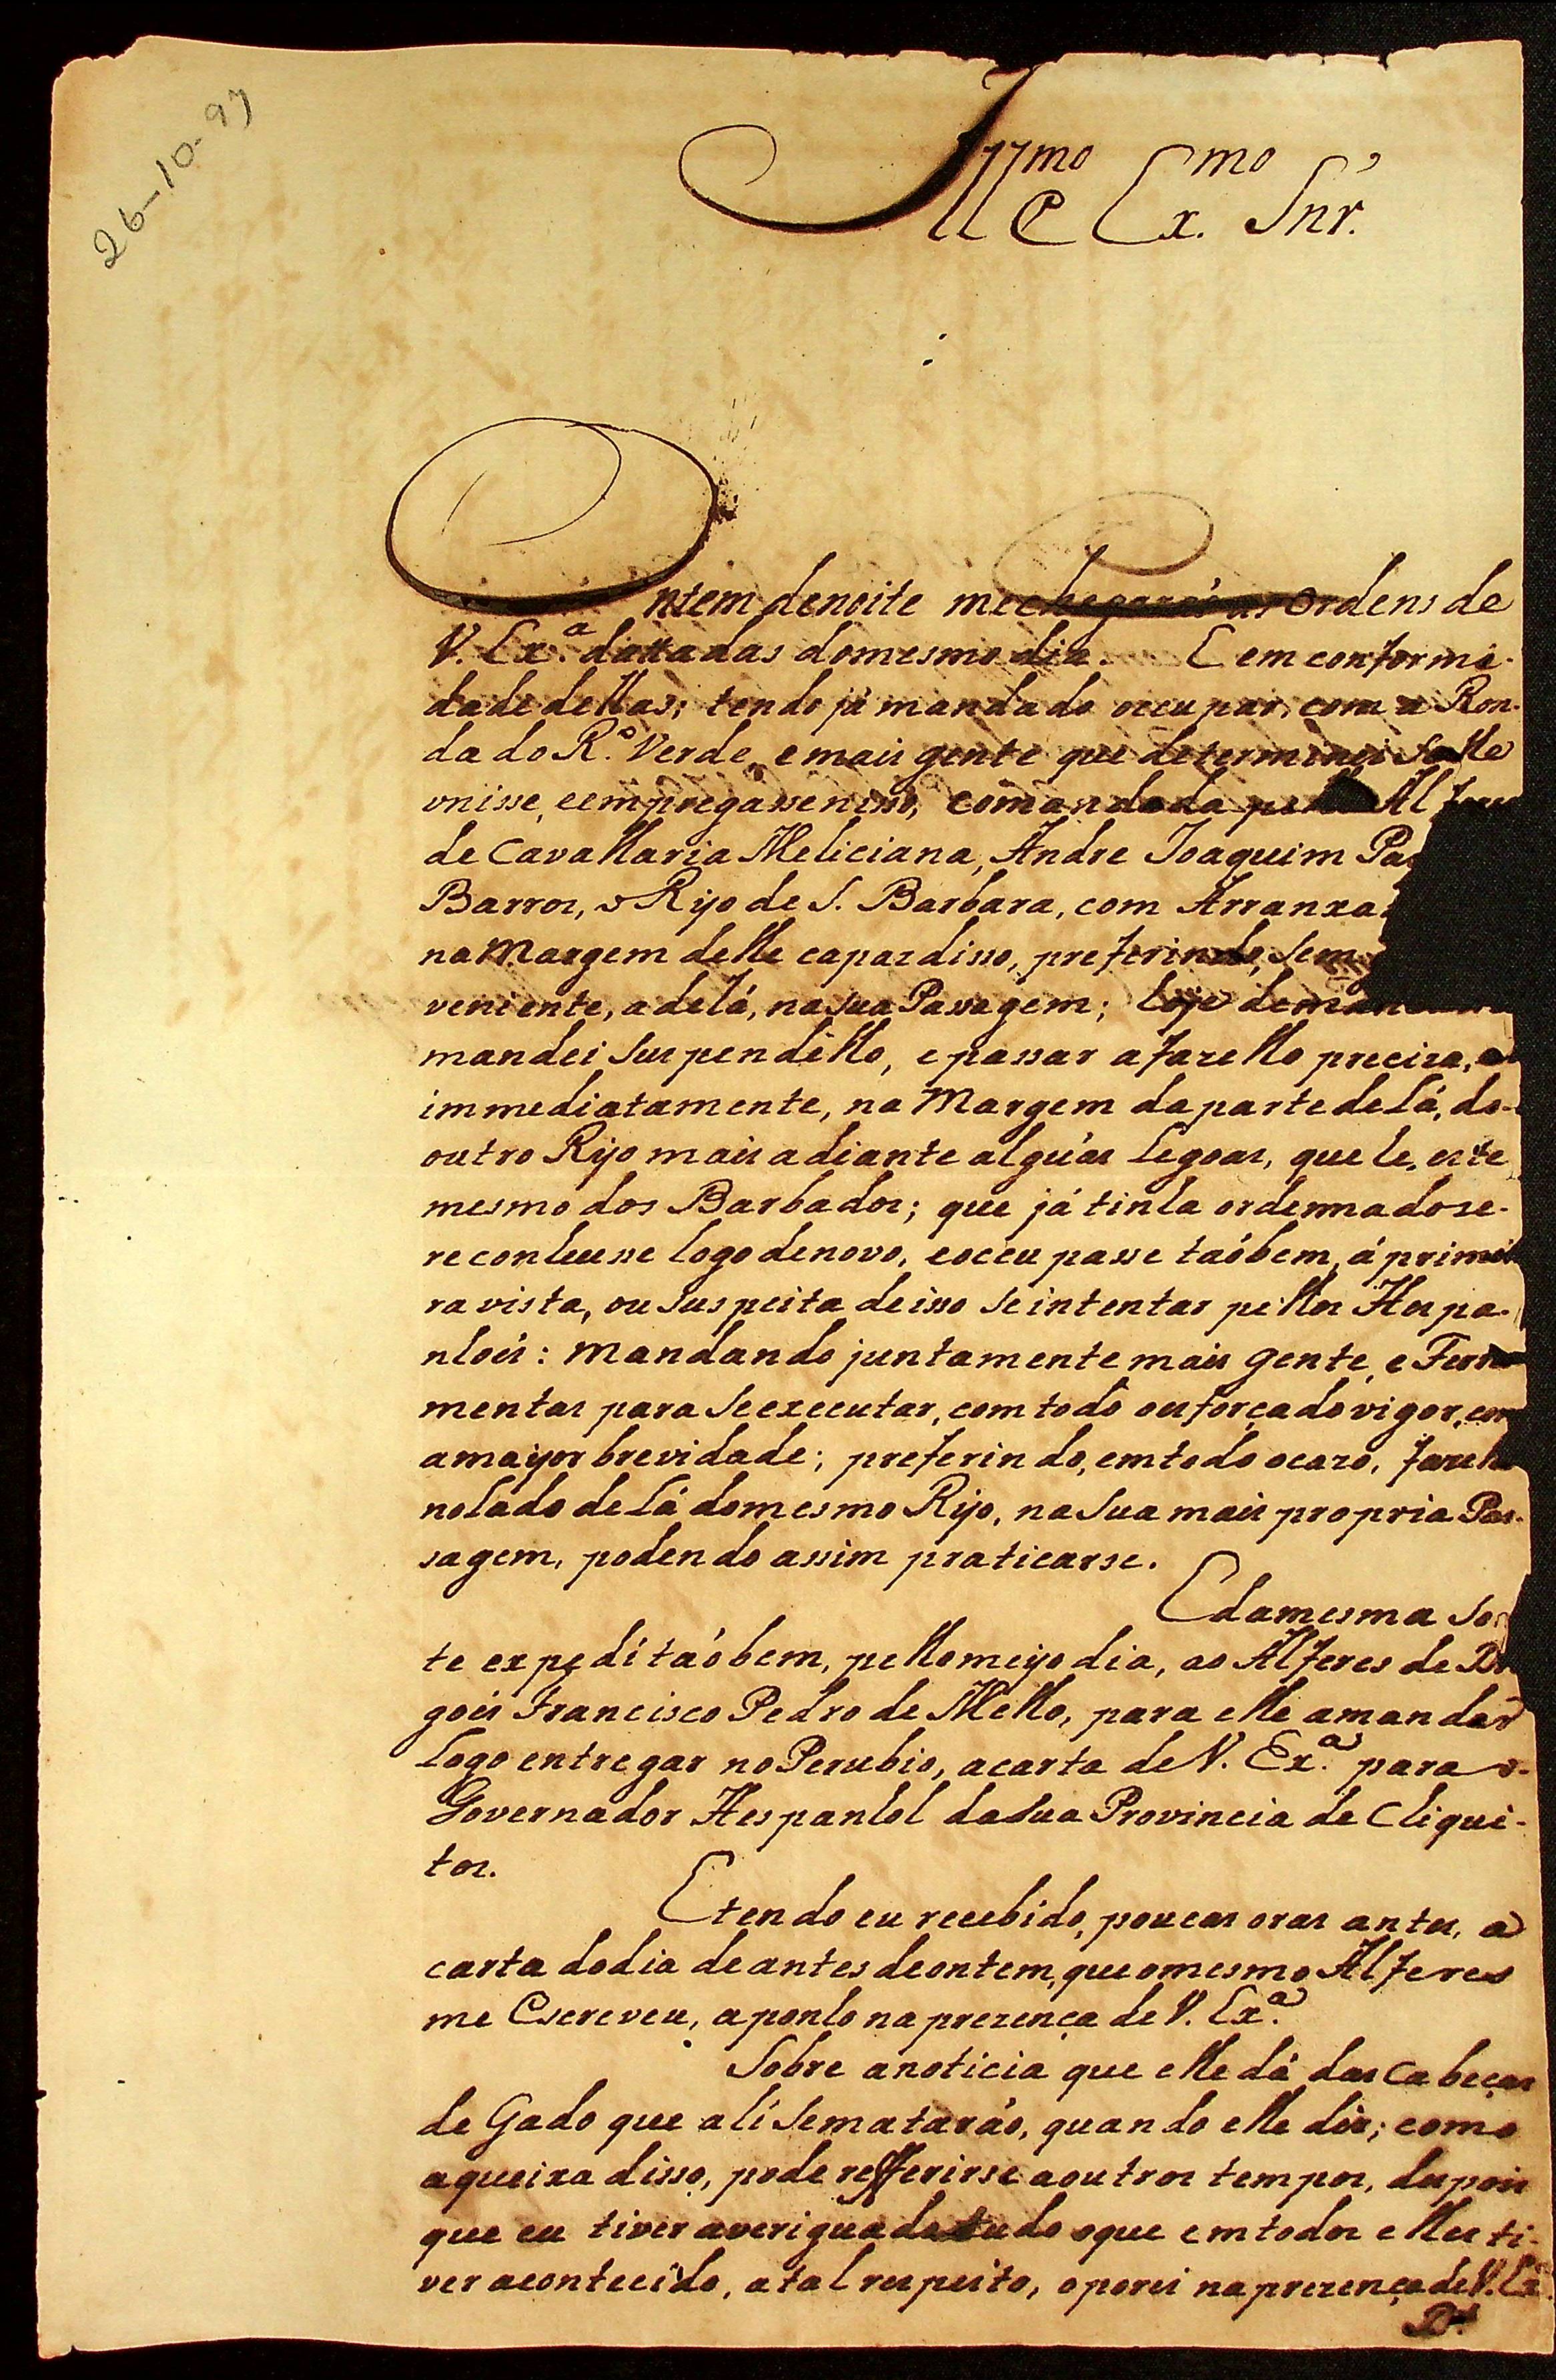 26-10-97
Ill.mo e Ex.mo Snr.
Ontem denoite mechegaraó as Ordens de
V. Ex.a dattadas domesmo dia. E em conformi-
dade dellas; tendo já mandado occupar, com a Ron-
da do R.o Verde, emais gente que determinei se lhe
vnisse, eempregasse nisso, comandada pello Alferes
de Cavallaria Meliciana, Andre Joaquim
Barros, o Rijo de S. Barbara, com Arranxa
na Margem delle capaz disso, preferindo, sem
veniente, adelá, nasua Passagem; hoje deman
mandei suspendello, epassar afazello preciza,
immediatamente, na Margem daparte delá, do
outro Rijo mais adiante alguás Legoas, que he, este
mesmo dos Barbados; que já tinha ordennadose-
reconhecesse logo denovo, eoccupasse taóbem, á primei
ravista, ou suspeita deisso seintentar pellos Hespa-
nhoís: mandando juntamente mais gente, e Ferra
mentas para seexecutar, comtodo oesforçadovigor, com
amayor brevidade; preferindo, emtodo ocazo, fazello
nolado delá domesmo Rijo, nasua mais propria Pas-
sagem, podendo assim praticarse.
Edamesma Sor
te expedí taóbem, pellomeijo dia, ao Alferes de Dra
goís Francisco Pedro de Mello, para elle amandar
Logo entregar no Perubio, acarta de V. Ex.a para o
Governador Hespanhol dasua Provincia de Chiqui-
tos.
Etendo eu recebido, poucas oras antes, a
carta dodia deantes deontem, queomesmo Alferes
me Escreveu, aponho naprezença de V. Ex.a
Sobre anoticia que elle dá das Cabeças
de Gado que alí semataráo, quando elle diz; como
aqueixa disso, pode refferirse aoutros tempos, depois
que eu tiver averiguado tudo oque emtodos elles ti-
ver acontecido, atal respeito, oporei naprezença de V. Ex.a
D.s